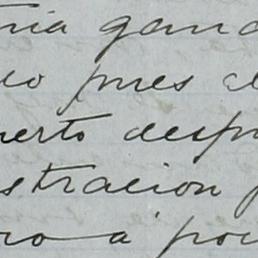 nia gana
eo pues al
uerto despu
stracion p
ro a pon